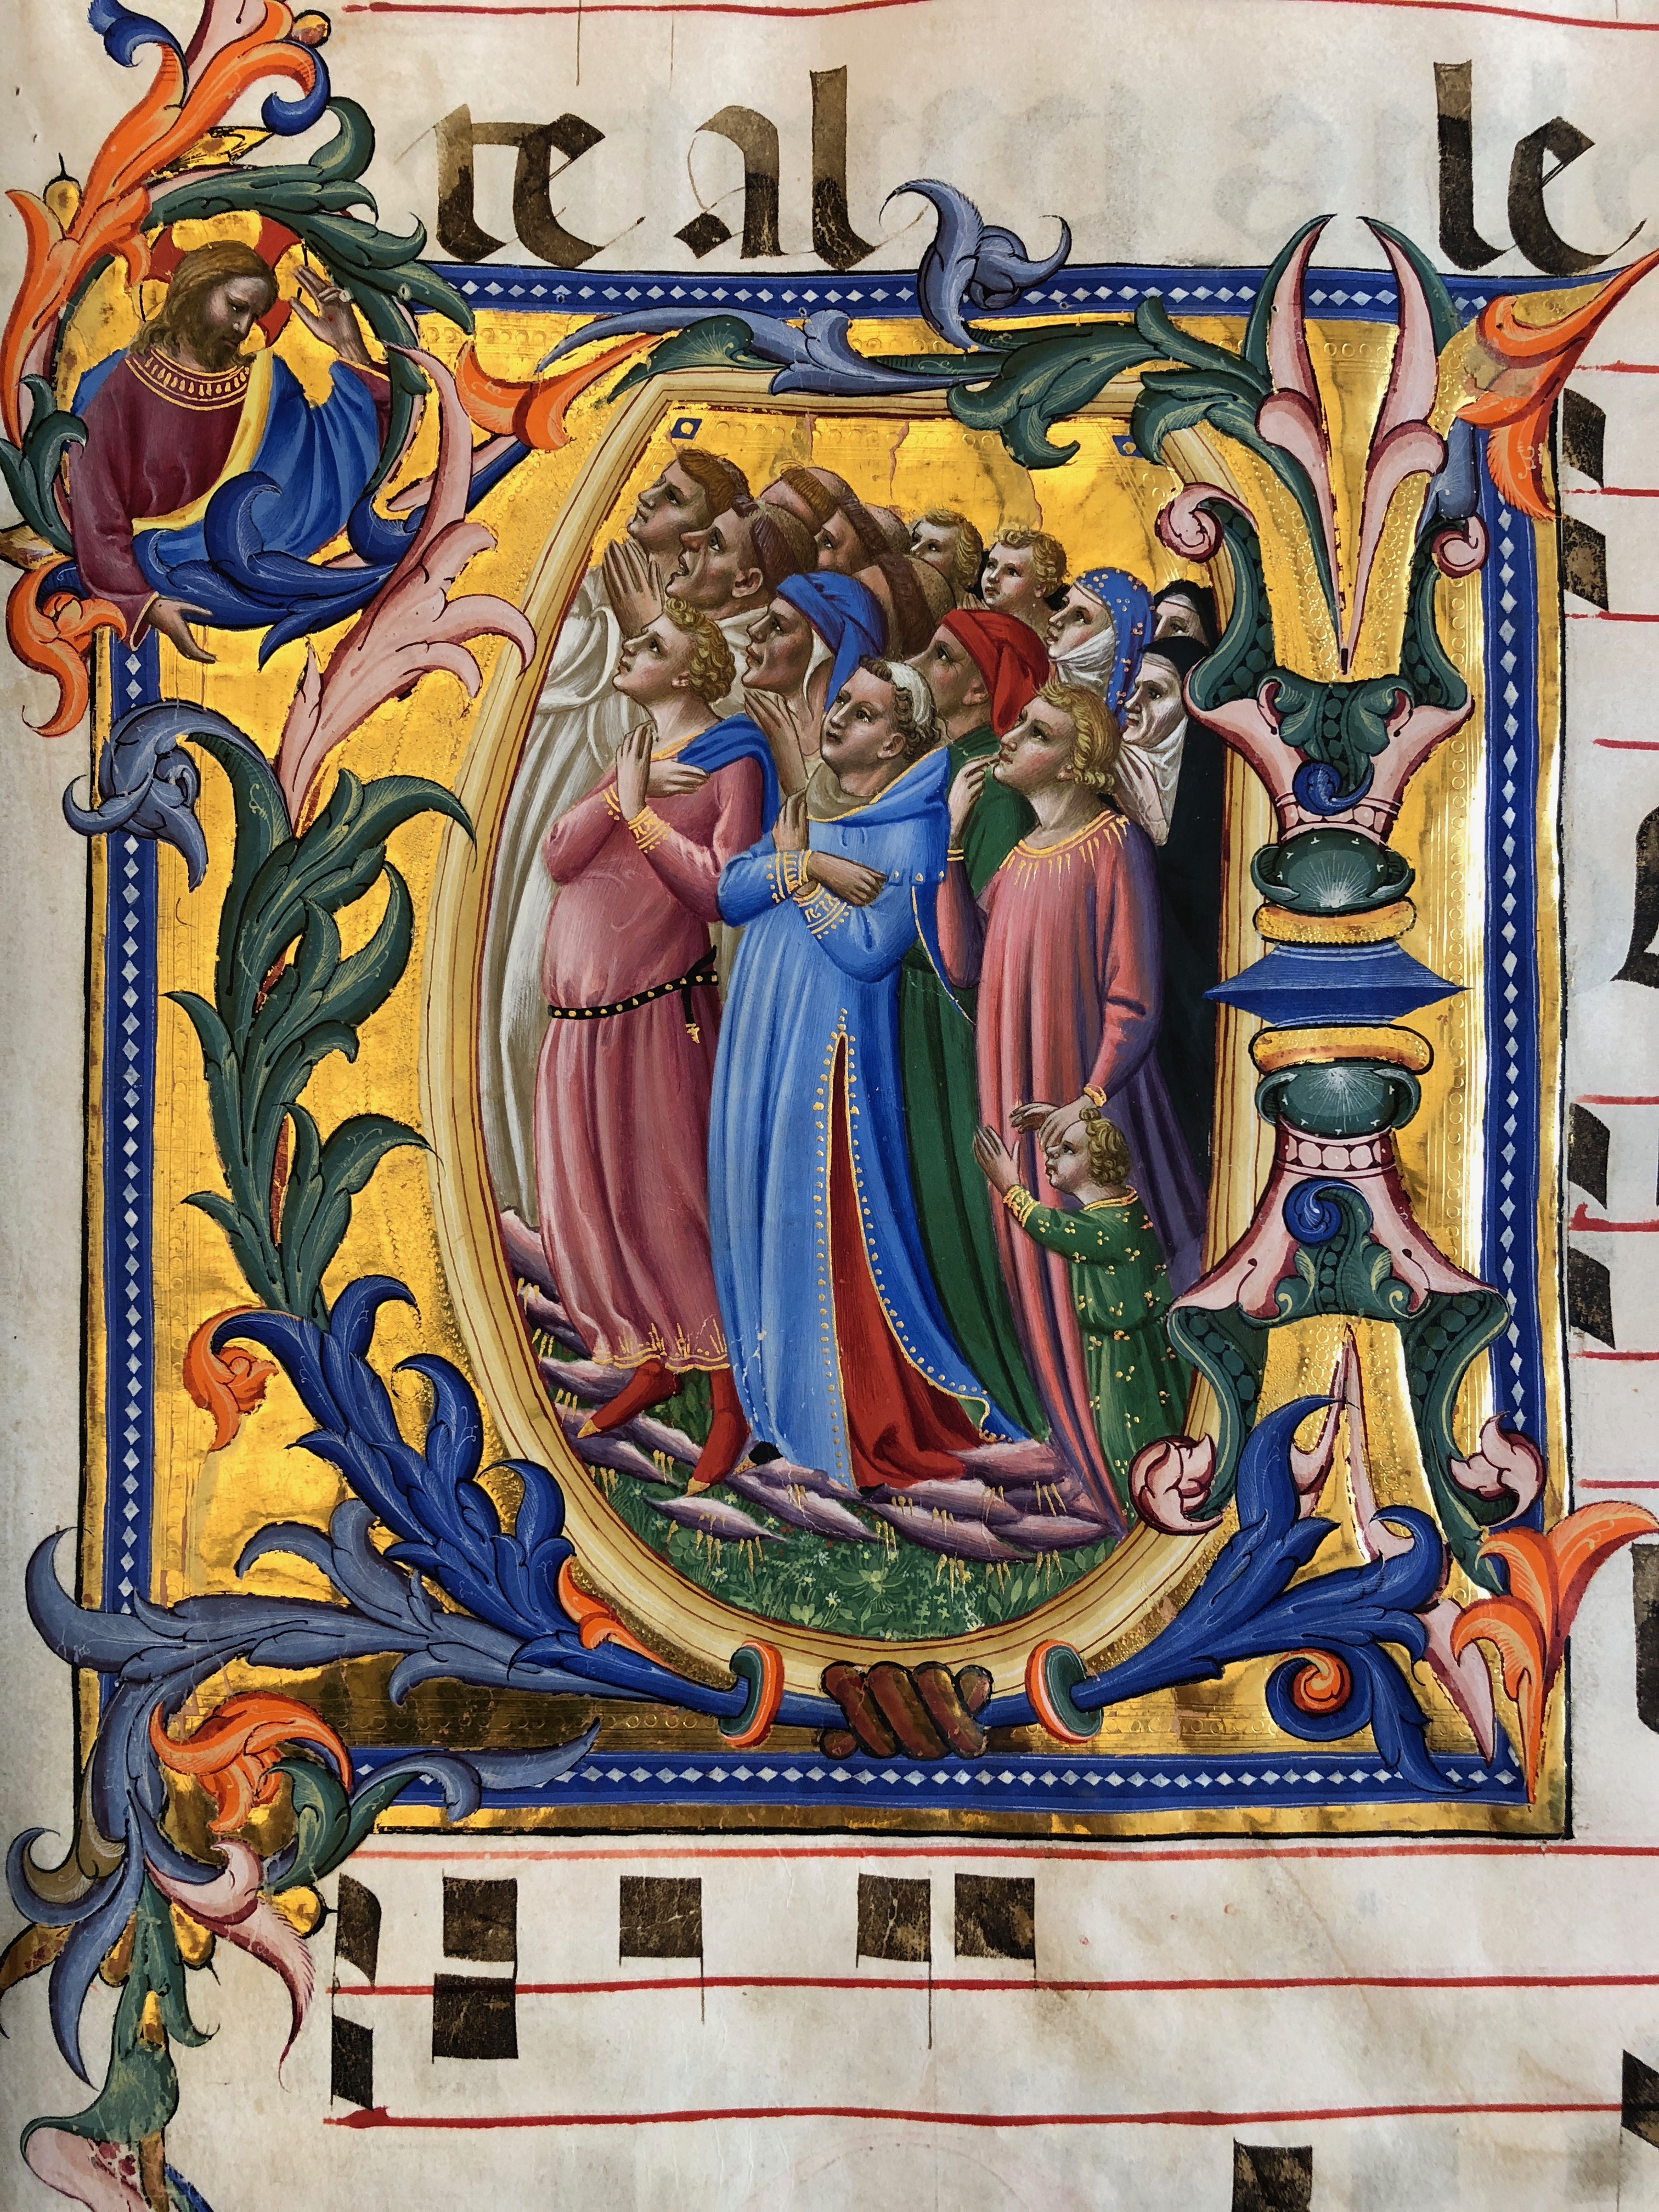 te al le